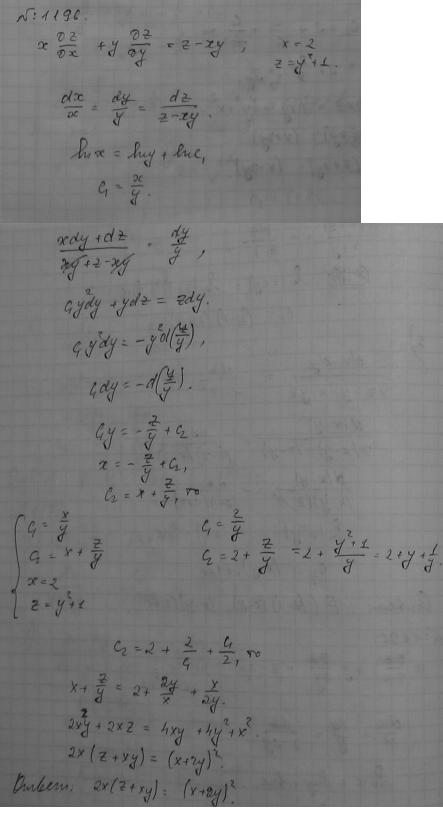 №: 1196.
x ∂z/∂x + y ∂z/∂y = z - xy, x = 2
z = y² + 1.
dx/x = dy/y = dz/(z - xy).
ln x = ln y + ln c₁
c₁ = x/y.
(xdy + dz)/(xy + z - xy) = dy/y,
c₁y²dy + ydz = zdy.
c₁y²dy = -y²d(z/y),
c₁dy = -d(z/y).
c₁y = -z/y + c₂.
x = -z/y + c₂,
c₂ = x + z/y, то
c₁ = x/y c₁ = 2/y
c₂ = x + z/y c₂ = 2 + z/y = 2 + (y² + 1)/y = 2 + y + 1/y.
x = 2
z = y² + 1
c₂ = 2 + 2/c₁ + c₁/2, то
x + z/y = 2 + 2y/x + x/2y.
2x²y + 2xz = 4xy + 4y² + x²
2x(z + xy) = (x + 2y)².
Ответ: 2x(z + xy) = (x + 2y)².